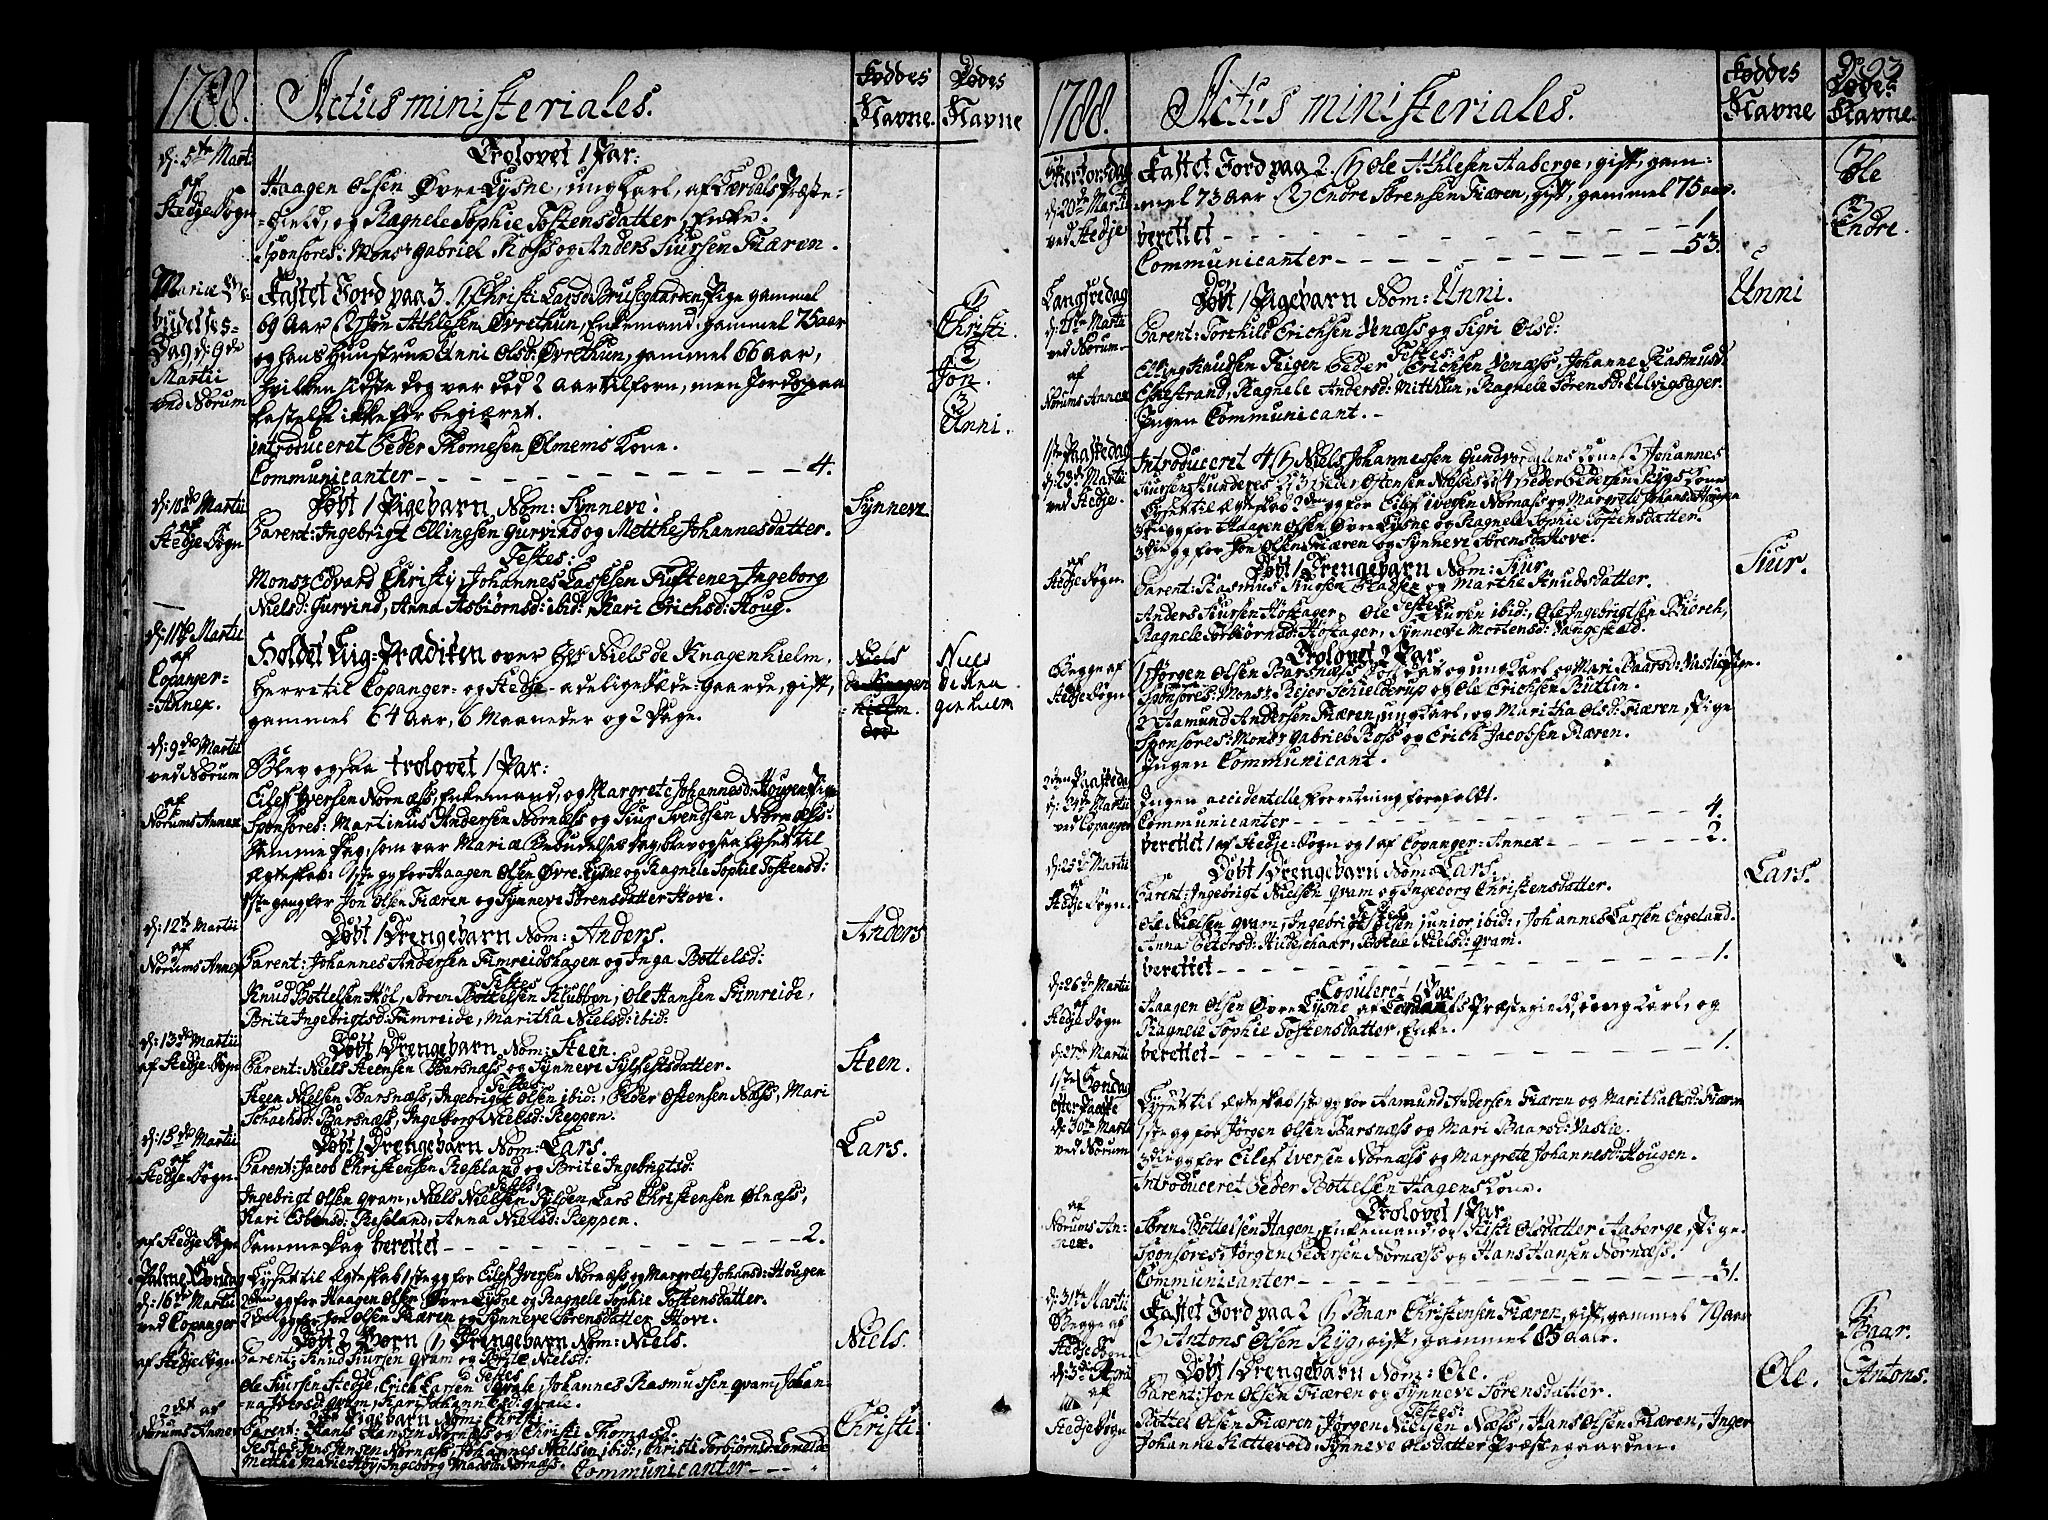 1788.
Actus ministeriales.
Føddes Navne.
Dødes Navne
d: 5te Mart:
af
Stedje Sogn
Trolovet 1 Par:
Haagen Olsen Øvre Lysne, ung Karl, af Lærdals Præste-
-Gield, og Ragnele Sophie Tostensdatter, Enke.
Sponsores: Monsr Gabriel Ross og Anders Siursen Fiæren.
Mariæ Be-
budelses-
Dag, d: 9de
Martii
ved Norum
Kastet Jord paa 3. 1) Christi Larsd: Brusegaarden Pige gammel
69 Aar 2) Jon Athlesen Øvrethun, Enkemand, gammel 75 aar
og hans Huustrue Unni Olsd: Øvrethun, gammel 66 aar,
hvilken sidste dog var død 2 Aar tilforn, men Jords paa
kastelse ikke før begiæret.
introduceret Peder Thomesen Ølmems Kone.
Communicanter - - - 4.
1
Christi.
2
Jon.
3
Unni.
d: 10de Martii
af
Stedje Sogn
Døbt 1 Pigebarn Nom: Synneve:
Parent: Ingebrigt Ellingsen Gurvind og Metthe Johannesdatter.
Testes:
Monsr Edvard Christy, Johannes Lassesen Tustene, Ingeborg
Nielsd: Gurvind, Anna Asbiørnsd: ibid:, Kari Erichsd: Houg.
Synneve
d: 11te Martii
af
Copanger-
-Annex.
Holdet Liig-Prædiken over Hr Niels de Knagenhielm,
Herre til Copanger- og Stedje-adelige Sæde-Gaarde, gift,
gammel 64 aar, 6 Maaneder og 2 Dage.
Niels
de Knagen
-hielm.
Niels
de Kna
genhielm
d: 9de Martii
ved Norum
af
Norums Annex
Blev ogsaa trolovet 1 Par:
Eilef Iversen Nornæss, Enkemand, og Margrete Johannesd: Hougen, Pige
Sponsores: Martinus Andersen Nornæss og Siur Svendsen Nornæss.
Samme Dag, som var Mariæ Bebudelses Dag, blev ogsaa lyset til
Ægteskab: 1ste gg for Haagen Olsen Øvre Lysne og Ragnele Sophie Tostensd:
1ste gang for Jon Olsen Fiæren og Synneve Sørensdatter Hove.
d: 12te Martii
af
Norums Annex
Døbt 1 Drengebarn Nom: Anders.
Parent: Johannes Andersen Fimreidshagen og Inga Bottelsd:
Testes
Knud Bottelsen Høl, Søren Bottelsen Klubben, Ole Hansen Fimreide,
Brite Ingebrigtsd: Fimreide, Maritha Nielsd: ibid:
Anders
d: 13de Martii
af Stedje Sogn
Døbt 1 Drengebarn Nom: Steen.
Parent: Niels Steensen Barsnæss og Synneve Sylfestsdatter.
Testes:
Steen Nielsen Barsnæss, Ingebrigt Olsen ibid:, Peder Ostensen Næss, Mari
Barsnæss, Ingeborg Nielsd: Reppen.
Steen.
d: 15de Martii
af
Stedje Sogn.
Døbt 1 Drengebarn Nom: Lars.
Parent: Jacob Christensen Reseland og Brite Ingebrigtsd:
Testes,
Ingebrigt Olsen Qvam, Niels Nielsen Sylden, Lars Christensen Ølnæss,
Kari Esbensd: Reseland, Anna Nielsd: Reppen.
Lars.
af Stedje Sogn
Samme Dag berettet - - - 2.
Palme Søndag
d: 16de Martii
ved Copanger
Lyset til Ægteskab 1ste gg for Eilef Iversen Nornæss og Margrete Johansd: Hougen
2den gg for Haagen Olsen Øvre Lysne og Ragnele Sophie Tostensdatter.
2den gg for Jon Olsen Fiæren og Synneve Sørensdatter Hove.
af Stedje Sogn
Døbt 2 Børn 1) Drengebarn Nom: Niels.
Parent: Knud Siursen Qvam og Brite Nielsd:
Testes
Ole Siursen Stedje, Erich Larsen Qvale, Johannes Rasmussen Qvam, Johan-
na Qvam, Kari Johannesd: Qvale.
Niels.
2det af
Norums Annex
2det Pigebarn Nom: Christi
Parent: Hans Hansen Nornæss og Christi Thomasd:
Testes Jens Jensen Nornæss, Johannes Nielsen ibid:, Christi Torbiørnsd:
Metthe Marie Aaby, Ingeborg Madsd: Nornæss.
Communicanter - - -
Christi.
1788.
Actus ministeriales.
Føddes
Navne
Døde-
Navne.
Skiertorsdag
d: 20de Martii
ved Stedje
Kastet Jord paa 2. 1) Ole Athlesen Aaberge, gift, gam-
mel 73 aar 2) Endre Sørensen Fiæren, gift, gammel 75 aar.
berettet - - - 1
Communicanter - - - 53.
1
Ole
2
Endre.
Langfredag
d: 21de Martii
ved Norum
af
Norums Annex
Døbt 1 Pigebarn Nom: Unni.
Parent: Torchild Erichsen Venæss og Sigri Olsd:
Testes:
Elling Knudsen Feigen Peder Erichsen Venæss, Johanne Rasmusd:
Eschestrand, Ragnele Andersd: Mitthun, Ragnele Sørensd: Ulvigsager.
Ingen Communicant.
Unni
1ste Paaskedag
d: 23de Martii
ved Stedje.
Introduceret 4 1) Niels Johannessen Gundvordalens Kone 2) Johannes
Siursen Kunderes 3) Peder Ostensen Næsses 4) Peder Pedersen Rygs Kone
Lyset til Ægteskab 2den gg for Eilef Iversen Nornæss og Margrete Johansd: Hougen
3die gg for Haagen Olsen Øvre Lysne og Ragnele Sophie Tostensdatter.
3die gg for Jon Olsen Fiæren og Synneve Sørensd: Hove.
af
Stedje Sogn.
Døbt 1 Drengebarn Nom: Siur.
Parent: Rasmus Siursen Stadsen og Marthe Knudsdatter.
Testes
Anders Siursen Høstager, Ole Siursen ibid:, Ole Ingebrigtsen Biørch,
Ragnele Torbiørnsd: Høstager, Synneve Mortensd: Vangestad.
Siur.
Begge af
Stedje Sogn.
Trolovet 2 Par
1) Jørgen Olsen Barsnæss Soldat og ung Karl, og Mari Baarsd: Vastie, Pige.
Sponsores: Monsr Rejer Schielderup og Ole Erichsen Ruttlin.
2 Aamund Andersen Fiæren, ung Karl, og Maritha Olsd: Fiæren, Pige
Sponsores: Monsr Gabriel Ross og Erich Jacobsen Fiæren.
Ingen Communicant.
2den Paaskedag
d: 24de Martii
ved Copanger
Ingen accidentelle Forretning forefaldt.
Communicanter - - - 4.
berettet 1 af Stedje-Sogn og 1 af Copanger-Annex - - - 2.
d: 25de Martii
af
Stedje Sogn.
Døbt 1 Drengebarn Nom: Lars.
Parent: Ingebrigt Nielsen Qvam og Ingeborg Christensdatter.
Testes
Ole Nielsen Qvam, Ingebrigt Olsen junior ibid:, Johannes Larsen Engeland.
Anna Petersd: Hildeschaar, Botele Nielsd: Qvam.
berettet - - - 1.
Lars.
d: 26de Martii
af
Stedje Sogn
Copuleret 1 Par
Haagen Olsen Øvre Lysne af Lærdals Præstegield, ung Karl, og
Ragnele Sophie Tostensdatter, Enke.
d: 27de Martii
berettet - - - 1.
1ste Søndag
efter Paaske
d: 30te Martii
ved Norum
Lyset til Ægteskab 1ste gg for Aamund Andersen Fiæren og Maritha Olsd: Fiæren
1ste gg for Jørgen Olsen Barsnæss og Mari Baarsd: Vastie.
3die gg for Eilef Iversen Nornæss og Margrete Johannesd: Hougen.
Introduceret Peder Bottelsen Hagens Kone.
af
Norums An-
nex.
Trolovet 1 Par
Søren Bottelsen Hagen, Enkemand, og Christi Olsdatter Aaberge, Pige.
Sponsores, Jørgen Pedersen Nornæss og Hans Hansen Nornæss.
Communicanter - - - 31.
d: 31te Martii
Begge af
Stedje Sogn.
Kastet Jord paa 2 1) Baar Christensen Fiæren, gift, gammel 79 aar
2) Antons Olsen Ryg, gift, gammel 85 aar.
1
Baar.
2
Antons.
d: 3die April
af
Stedje Sogn
Døbt 1 Drengebarn Nom: Ole.
Parent: Jon Olsen Fiæren og Synneve Sørensdatter.
Testes:
Bottel Olsen Fiæren, Jørgen Nielsen Næss, Hans Olsen Fiæren, Inger
Johanne Kattevold, Synneve Olsdatter Præstegaarden.
Ole.